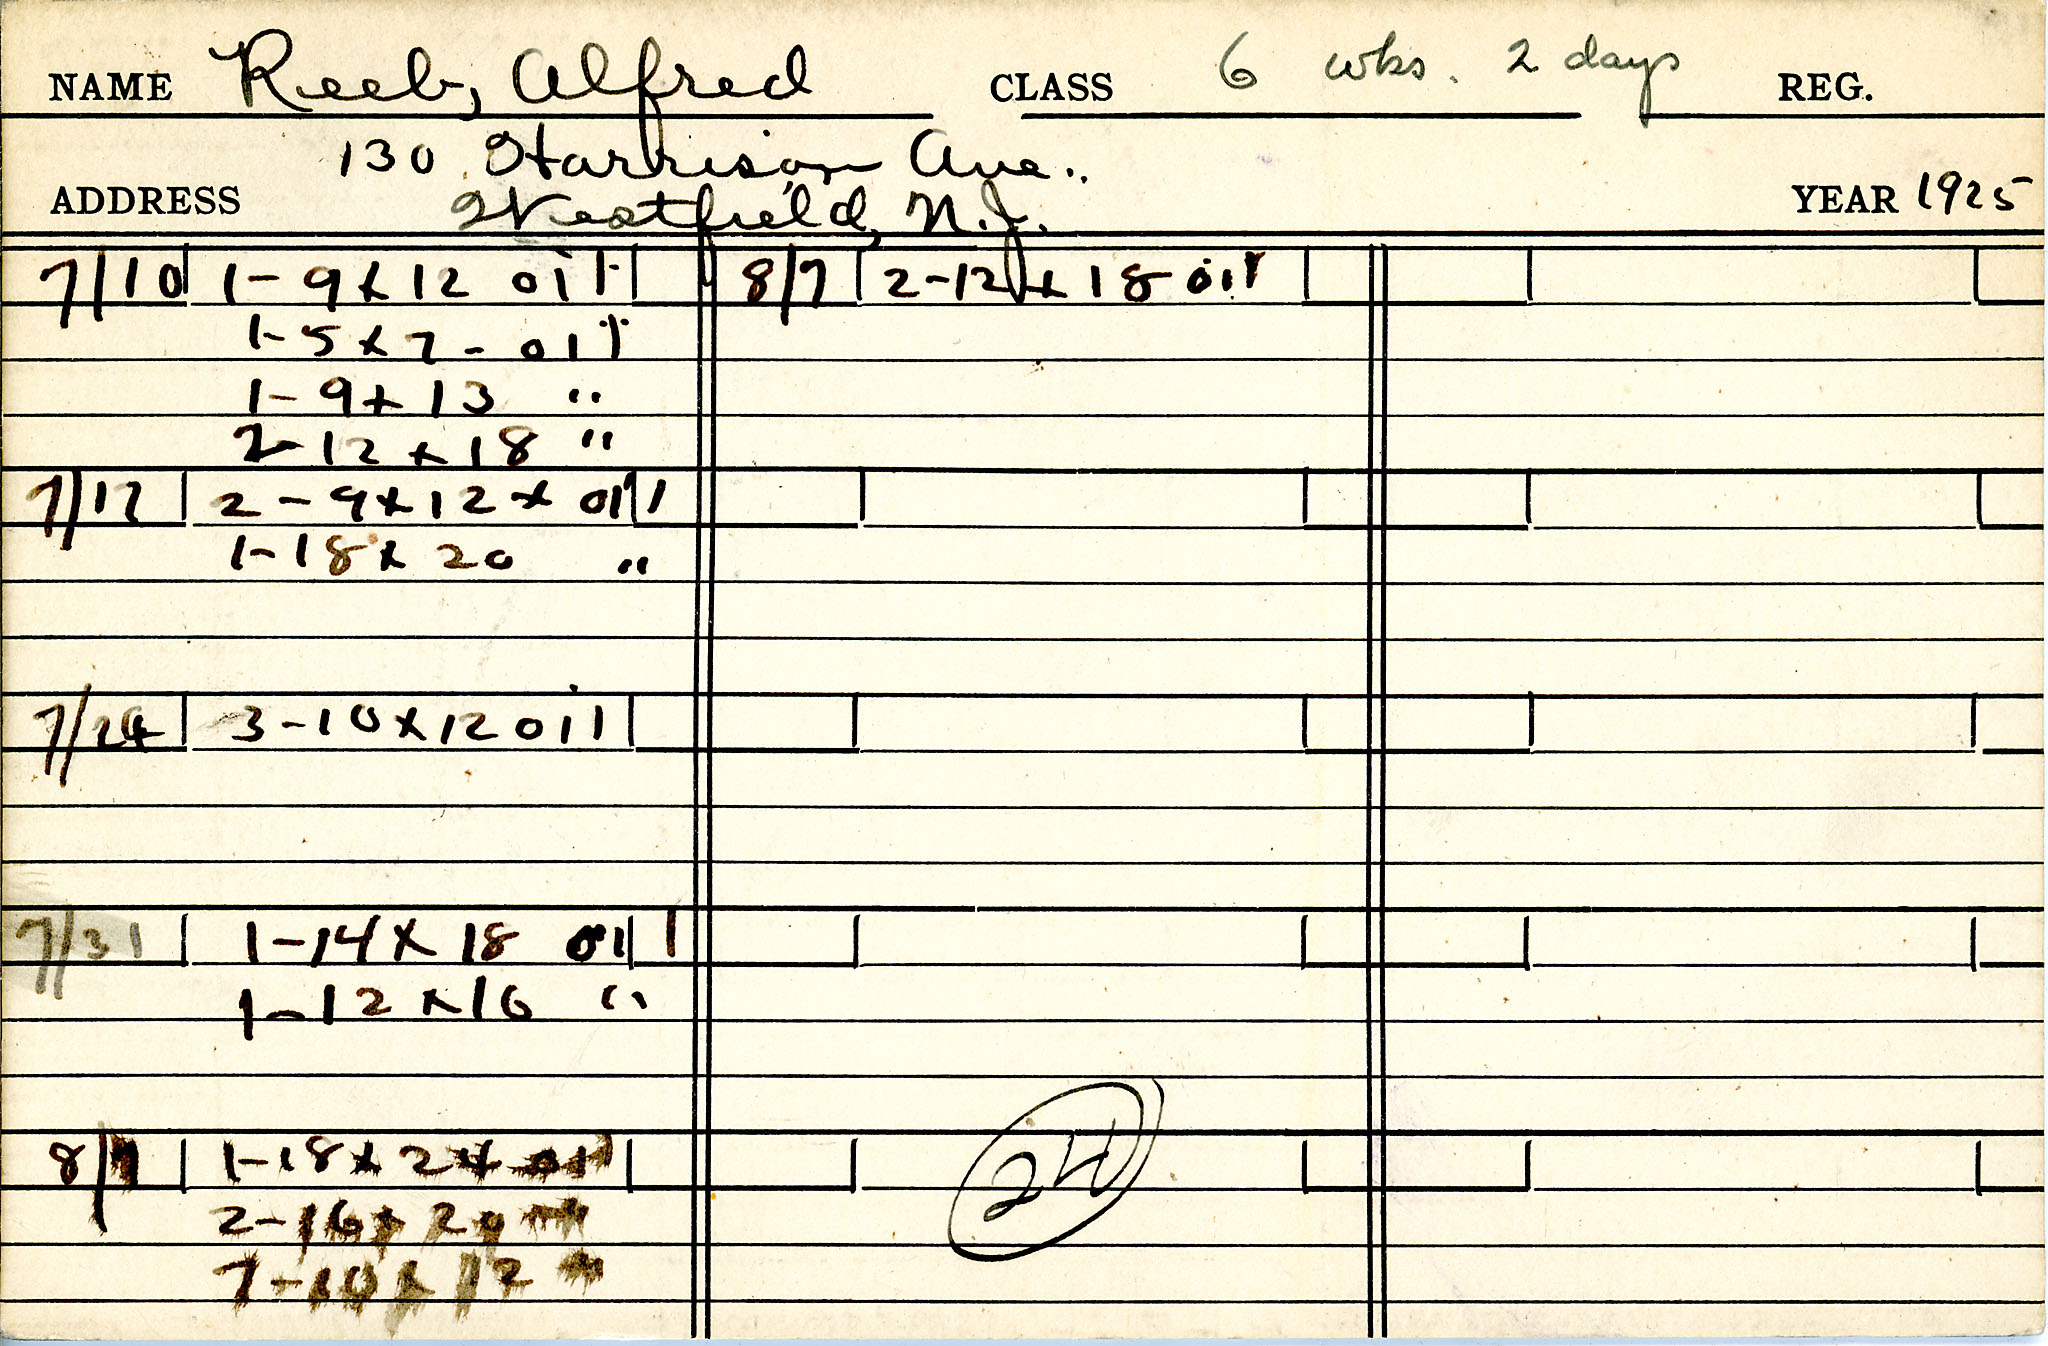 NAME Reeb, Alfred CLASS 6 wks. 2 days REG.
130 Harrison Ave.
ADDRESS Westfield, N.J. YEAR 1925
7/10 1-9x12 oil 8/7 2-12x18 oil
1-5x7-oil
1-9x13 "
2-12x18 "
7/17 2-9x12x oil
1-18x20 "
7/24 3-10x12 oil
7/31 1-14x18 oil
1-12x16 "
8/7 1-18x24 oil
2-16x20 "
7-10x12 "
24